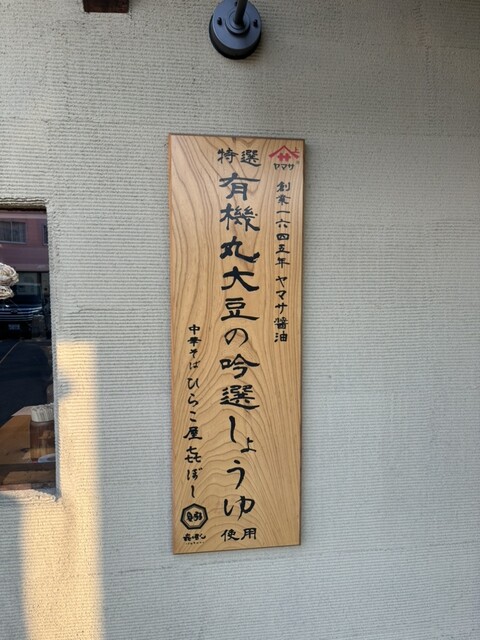 ヤマサ
創業一六四五年 ヤマサ醤油
特選
有機丸大豆の吟選しょうゆ
使用
中華そば ひらこ屋 㐂ぼし